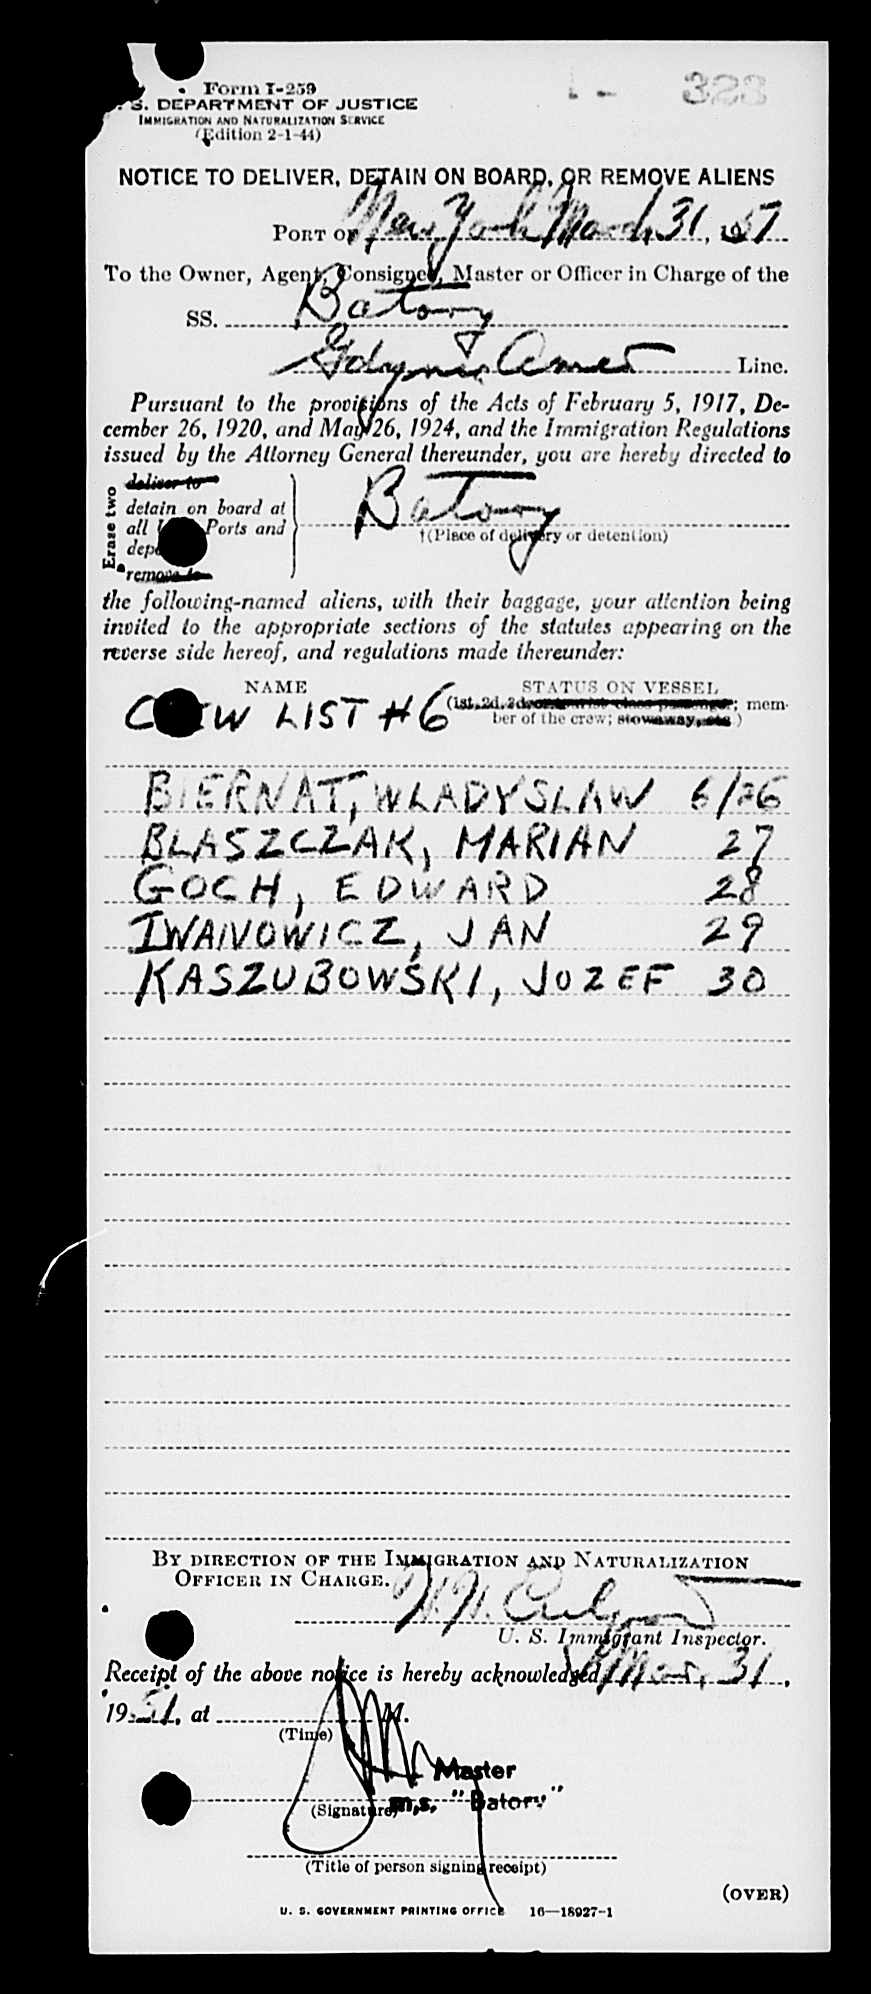 328
Form I-259
S. DEPARTMENT OF JUSTICE
IMMIGRATION AND NATURALIZATION SERVICE
(Edition 2-1-44)
NOTICE TO DELIVER, DETAIN ON BOARD, OR REMOVE ALIENS
PORT OF New York March 31, 1951
To the Owner, Agent, Consignee, Master or Officer in Charge of the
SS. Batory
Gdynia Amer Line.
Pursuant to the provisions of the Acts of February 5, 1917, De-
cember 26, 1920, and May 26, 1924, and the Immigration Regulations
issued by the Attorney General thereunder, you are hereby directed to
Erase two
deliver to
detain on board at
all Ports and
remove to
Batory
†(Place of delivery or detention)
the following-named aliens, with their baggage, your attention being
invited to the appropriate sections of the statutes appearing on the
reverse side hereof, and regulations made thereunder:
NAME STATUS ON VESSEL
CREW LIST # 6 (1st, 2d, 3d, or tourist class passenger; mem-
ber of the crew; stowaway, etc.)
BIERNAT, WLADYSLAW 6/26
BLASZCZAK, MARIAN 27
GOCH, EDWARD 28
IWANOWICZ, JAN 29
KASZUBOWSKI, JOZEF 30
BY DIRECTION OF THE IMMIGRATION AND NATURALIZATION
OFFICER IN CHARGE.
U. S. Immigrant Inspector.
Receipt of the above notice is hereby acknowledged Mar, 31,
1951, at M.
(Time)
Master
m.s. "Batory"
(Signature)
(Title of person signing receipt)
(OVER)
U. S. GOVERNMENT PRINTING OFFICE 16—18927-1